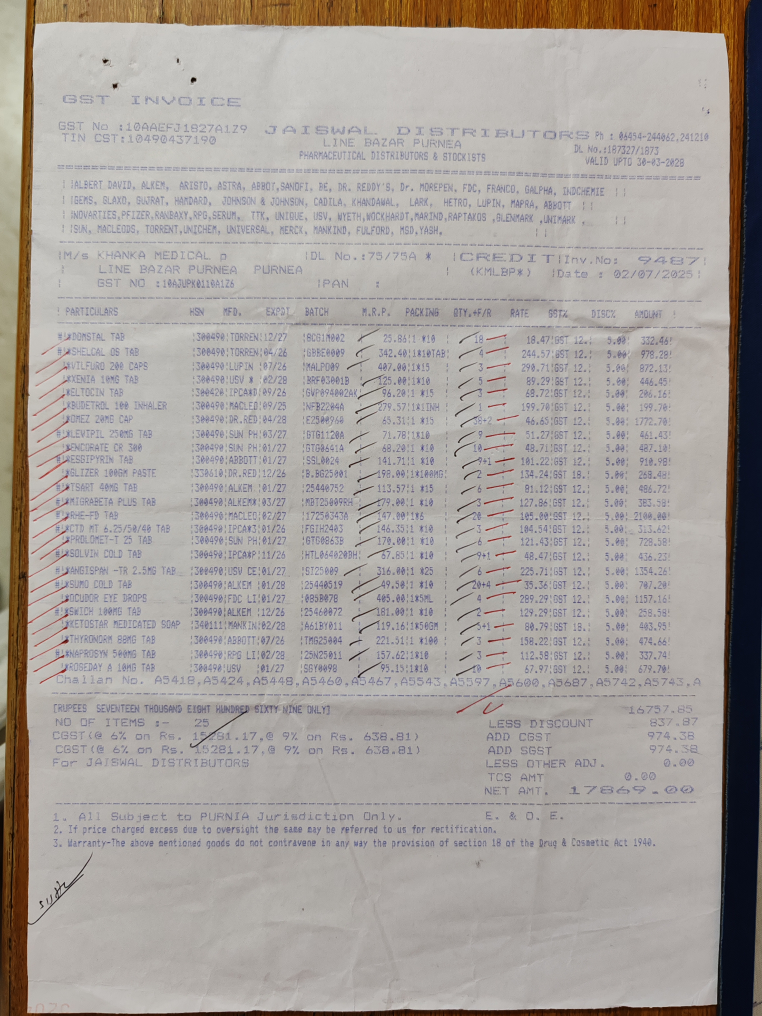 GST INVOICE
GST No :10AAEFJ1827A1Z9 JAISWAL DISTRIBUTORS Ph : 06454-244062,241210
TIN CST:10490437190 LINE BAZAR PURNEA DL No.:187327/1873
PHARMACEUTICAL DISTRIBUTORS & STOCKISTS VALID UPTO 30-03-2028
! !ALBERT DAVID, ALKEM, ARISTO, ASTRA, ABBOT,SANOFI, BE, DR. REDDY'S, Dr. MOREPEN, FDC, FRANCO, GALPHA, INDCHEMIE ! !
! !GEMS, GLAXO, GUJRAT, HAMDARD, JOHNSON & JOHNSON, CADILA, KHANDAWAL, LARK, HETRO, LUPIN, MAPRA, ABBOTT ! !
! !NOVARTIES,PFIZER,RANBAXY,RPG,SERUM, TTK, UNIQUE, USV, WYETH,WOCKHARDT,MARIND,RAPTAKOS ,GLENMARK ,UNIMARK , ! !
! !SUN, MACLEODS, TORRENT,UNICHEM, UNIVERSAL, MERCK, MANKIND, FULFORD, MSD,YASH, ! !
!M/s KHANKA MEDICAL p !DL No.:75/75A * !CREDIT!Inv.No: 9487!
! LINE BAZAR PURNEA PURNEA ! (KMLBP*) !Date : 02/07/2025!
! GST NO :10AJUPK0119A1Z6 !PAN :
! PARTICULARS HSN MFD. EXPDT BATCH M.R.P. PACKING QTY.+F/R RATE GST% DISC% AMOUNT !
#!*DOMSTAL TAB !300490!TORREN!12/27 !BCG1M002 25.86!1 *10 18 18.47!GST 12.! 5.00! 332.46!
#!*SHELCAL OS TAB !300490!TORREN!04/26 !GBBE0009 342.40!1*10TAB! 4 244.57!GST 12.! 5.00! 978.28!
#!*VILFURO 200 CAPS !300490!LUPIN !07/26 407.00!1*15 3 290.71!GST 12.! 5.00! 872.13!
#!*XENIA 10MG TAB !300490!USV * !02/28 !BRF03001B 125.00!1*10 5 89.29!GST 12.! 5.00! 446.45!
#!*ELTOCIN TAB !300420!IPCA*D!09/26 !GVP094002AK 96.20!1 *15 3 68.72!GST 12.! 5.00! 206.16!
#!*BUDETROL 100 INHALER !300490!MACLED!09/25 !NFB2204A 279.57!1*1INH 1 199.70!GST 12.! 5.00! 199.70!
#!*OMEZ 20MG CAP !300490!DR.RED!04/28 !E2500760 65.31!1 *15 38+2 46.65!GST 12.! 5.00! 1772.70!
#!*LEVIPIL 250MG TAB !300490!SUN PH!03/27 !GTG1120A 71.78!1 *10 9 51.27!GST 12.! 5.00! 461.43!
#!*ENCORATE CR 300 !300490!SUN PH!01/27 !GTG0641A 68.20!1 *10 10 48.71!GST 12.! 5.00! 487.10!
#!*ESGIPYRIN TAB !300490!ABBOTT!01/27 !SSL0024 141.71!1 *10 9+1 101.22!GST 12.! 5.00! 910.98!
*GLIZER 100GM PASTE !330610!DR.RED!12/26 !B.BG25001 198.00!1*100MG! 2 134.24!GST 18.! 5.00! 268.48!
#!*TSART 40MG TAB !300490!ALKEM !01/27 !25440752 113.57!1 *15 6 81.12!GST 12.! 5.00! 486.72!
#!*MIGRABETA PLUS TAB !300490!ALKEM*!03/27 179.00!1 *10 3 127.86!GST 12.! 5.00! 383.58!
#!*RHE-FD TAB !300490!MACLEO!02/27 !17250343A 147.00!1*6 20 105.00!GST 12.! 5.00! 2100.00!
#!*CTD MT 6.25/50/40 TAB !300490!IPCA*D!01/26 !FGIH2403 146.35!1 *10 3 104.54!GST 12.! 5.00! 313.62!
#!*PROLOMET-T 25 TAB !300490!SUN PH!01/26 !GTG0863B 170.00!1 *10 6 121.43!GST 12.! 5.00! 728.58!
#!*SOLVIN COLD TAB !300490!IPCA*P!11/26 !HTL064020BH! 67.85!1 *10 9+1 48.47!GST 12.! 5.00! 436.23!
#!*ANGISPAN -TR 2.5MG TAB !300490!USV CE!01/27 !S725009 316.00!1 *25 6 225.71!GST 12.! 5.00! 1354.26!
#!*SUMO COLD TAB !300490!ALKEM !01/28 !25440519 49.50!1 *10 20+4 35.36!GST 12.! 5.00! 707.20!
#!*OCUDOR EYE DROPS !300490!FDC LI!01/27 !085B078 405.00!1*5ML 4 289.29!GST 12.! 5.00! 1157.16!
#!*SWICH 100MG TAB !300490!ALKEM !12/26 !25460072 181.00!1 *10 2 129.29!GST 12.! 5.00! 258.58!
#!*KETOSTAR MEDICATED SOAP !340111!MANKIN!02/28 !A61BY011 119.16!1*50GM 5+1 80.79!GST 18.! 5.00! 403.95!
#!*THYRONORM 88MG TAB !300490!ABBOTT!07/26 !TMG25004 221.51!1 *100 3 158.22!GST 12.! 5.00! 474.66!
#!*NAPROSYN 500MG TAB !300490!RPG LI!02/28 !25N25011 157.62!1*10 3 112.58!GST 12.! 5.00! 337.74!
#!*ROSEDAY A 10MG TAB !300490!USV !01/27 !SSY0098 95.15!1*10 10 67.97!GST 12.! 5.00! 679.70!
Challan No. A5418,A5424,A5448,A5460,A5467,A5543,A5597,A5600,A5687,A5742,A5743,A
[RUPEES SEVENTEEN THOUSAND EIGHT HUNDRED SIXTY NINE ONLY] 16757.85
NO OF ITEMS :- 25 LESS DISCOUNT 837.87
CGST(@ 6% on Rs. 15281.17,@ 9% on Rs. 638.81) ADD CGST 974.38
CGST(@ 6% on Rs. 15281.17,@ 9% on Rs. 638.81) ADD SGST 974.38
For JAISWAL DISTRIBUTORS LESS OTHER ADJ. 0.00
TCS AMT 0.00
NET AMT. 17869.00
1. All Subject to PURNIA Jurisdiction Only. E. & O. E.
2. If price charged excess due to oversight the same may be referred to us for rectification.
3. Warranty-The above mentioned goods do not contravene in any way the provision of section 18 of the Drug & Cosmetic Act 1940.